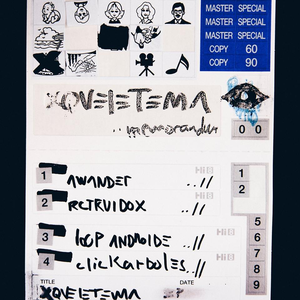 MASTER SPECIAL
MASTER SPECIAL
MASTER SPECIAL
COPY 60
COPY 90
XQVEIETEMA
..memorandum
0 0
1 AWANDET ..//
1
2 RETRVIDOX ..//
2
5
3 LOOP ANDROIDE ..//
6
7
4 clickarboles..//
8
9
TITLE
XQVEIETEMA